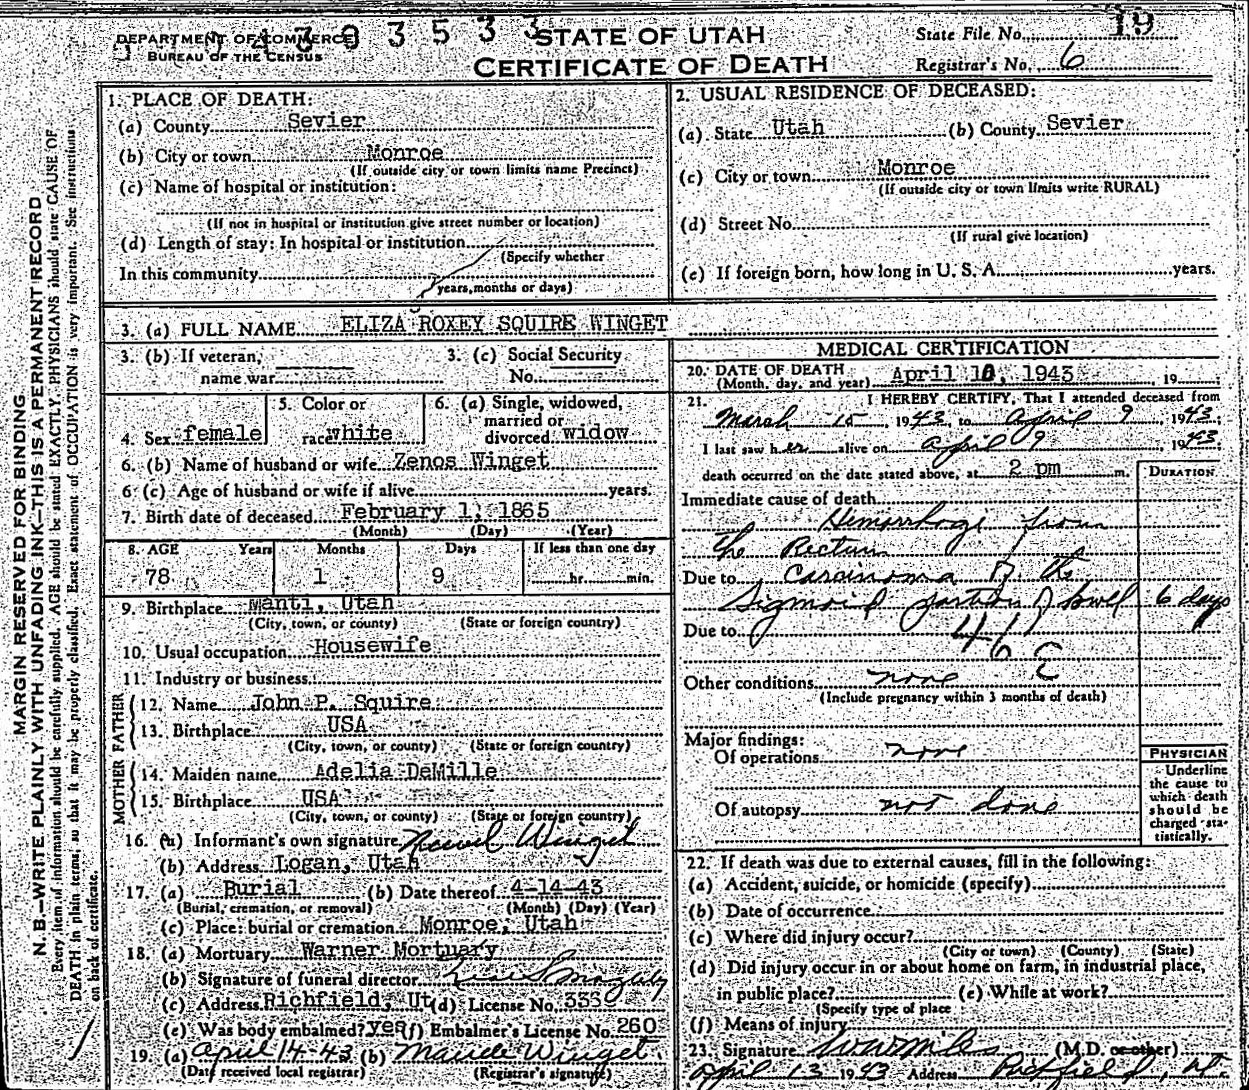 DEPARTMENT OF COMMERCE
BUREAU OF THE CENSUS
STATE OF UTAH
CERTIFICATE OF DEATH
State File No. 19
Registrar's No. 6
MARGIN RESERVED FOR BINDING
N. B—WRITE PLAINLY WITH UNFADING INK—THIS IS A PERMANENT RECORD
Every item of information should be carefully supplied. AGE should be stated EXACTLY. PHYSICIANS should state CAUSE OF
DEATH in plain terms, so that it may be properly classified. Exact statement of OCCUPATION is very important. See instructions
on back of certificate.
1. PLACE OF DEATH:
(a) County Sevier
(b) City or town Monroe
(If outside city or town limits name Precinct)
(c) Name of hospital or institution:
(If not in hospital or institution give street number or location)
(d) Length of stay: In hospital or institution
(Specify whether
In this community
years, months or days)
2. USUAL RESIDENCE OF DECEASED:
(a) State Utah (b) County Sevier
(c) City or town Monroe
(If outside city or town limits write RURAL)
(d) Street No.
(If rural give location)
(e) If foreign born, how long in U. S. A. years.
3. (a) FULL NAME ELIZA ROXEY SQUIRE WINGET
3. (b) If veteran, 3. (c) Social Security
name war No.
4. Sex female 5. Color or race white 6. (a) Single, widowed, married or divorced widow
6. (b) Name of husband or wife Zenos Winget
6. (c) Age of husband or wife if alive years.
7. Birth date of deceased February 1, 1865
(Month) (Day) (Year)
8. AGE Years Months Days If less than one day
78 1 9 hr. min.
9. Birthplace Manti, Utah
(City, town, or county) (State or foreign country)
10. Usual occupation Housewife
11. Industry or business
FATHER
12. Name John P. Squire
13. Birthplace USA
(City, town, or county) (State or foreign country)
MOTHER
14. Maiden name Adelia DeMille
15. Birthplace USA
(City, town, or county) (State or foreign country)
16. (a) Informant's own signature Winget
(b) Address Logan, Utah
17. (a) Burial (b) Date thereof 4-14-43
(Burial, cremation, or removal) (Month) (Day) (Year)
(c) Place: burial or cremation Monroe, Utah
18. (a) Mortuary Warner Mortuary
(b) Signature of funeral director
(c) Address Richfield, Ut (d) License No. 333
(e) Was body embalmed? yes (f) Embalmer's License No. 260
19. (a) April 14-43 (b) Maude Winget
(Date received local registrar) (Registrar's signature)
MEDICAL CERTIFICATION
20. DATE OF DEATH
(Month, day, and year) April 10, 1943, 19
21. I HEREBY CERTIFY, That I attended deceased from
March 15, 1943, to April 9, 1943;
I last saw her alive on April 9, 1943;
death occurred on the date stated above, at 2 pm m.
DURATION
Immediate cause of death
Hemorrhage from
the Rectum
Due to Carcinoma of the
Sigmoid portion of bowel 6 days
Due to 46 E
Other conditions none
(Include pregnancy within 3 months of death)
Major findings:
Of operations none
Of autopsy not done
PHYSICIAN
Underline
the cause to
which death
should be
charged sta-
tistically.
22. If death was due to external causes, fill in the following:
(a) Accident, suicide, or homicide (specify)
(b) Date of occurrence
(c) Where did injury occur?
(City or town) (County) (State)
(d) Did injury occur in or about home on farm, in industrial place,
in public place? (e) While at work?
(Specify type of place
(f) Means of injury
23. Signature (M.D. or other)
April 13 1943 Address Richfield, Ut.